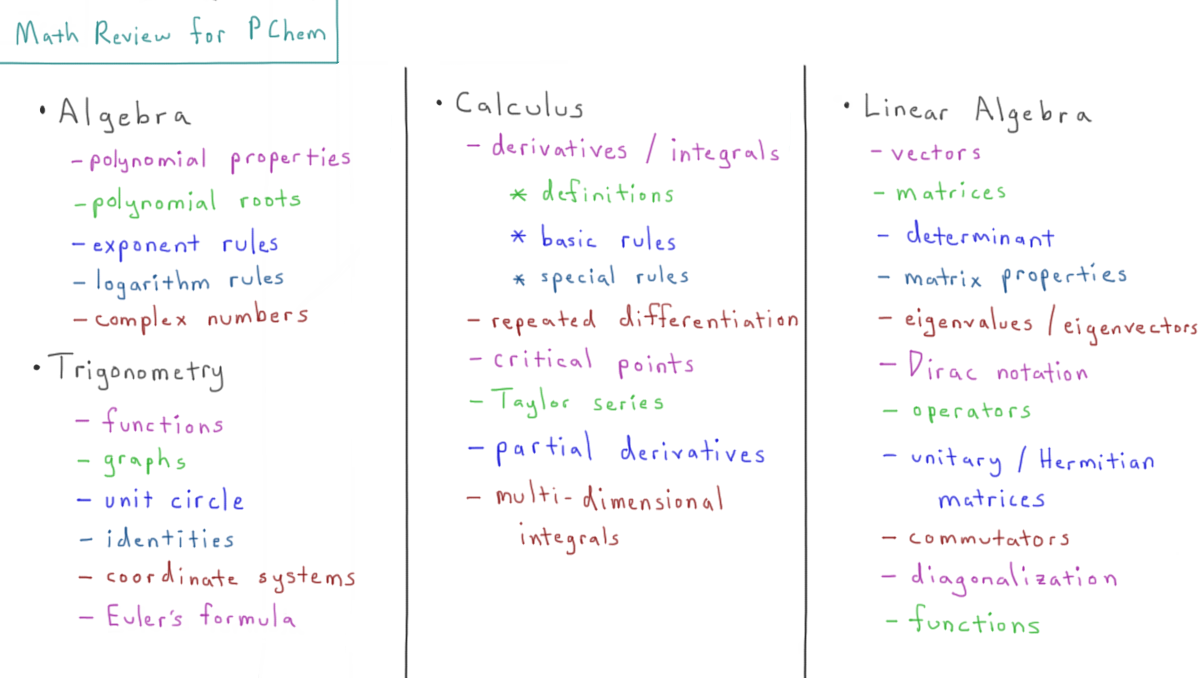 Math Review for PChem
• Algebra
- polynomial properties
- polynomial roots
- exponent rules
- logarithm rules
- complex numbers
• Trigonometry
- functions
- graphs
- unit circle
- identities
- coordinate systems
- Euler's formula
• Calculus
- derivatives / integrals
* definitions
* basic rules
* special rules
- repeated differentiation
- critical points
- Taylor series
- partial derivatives
- multi-dimensional
integrals
• Linear Algebra
- vectors
- matrices
- determinant
- matrix properties
- eigenvalues / eigenvectors
- Dirac notation
- operators
- unitary / Hermitian
matrices
- commutators
- diagonalization
- functions